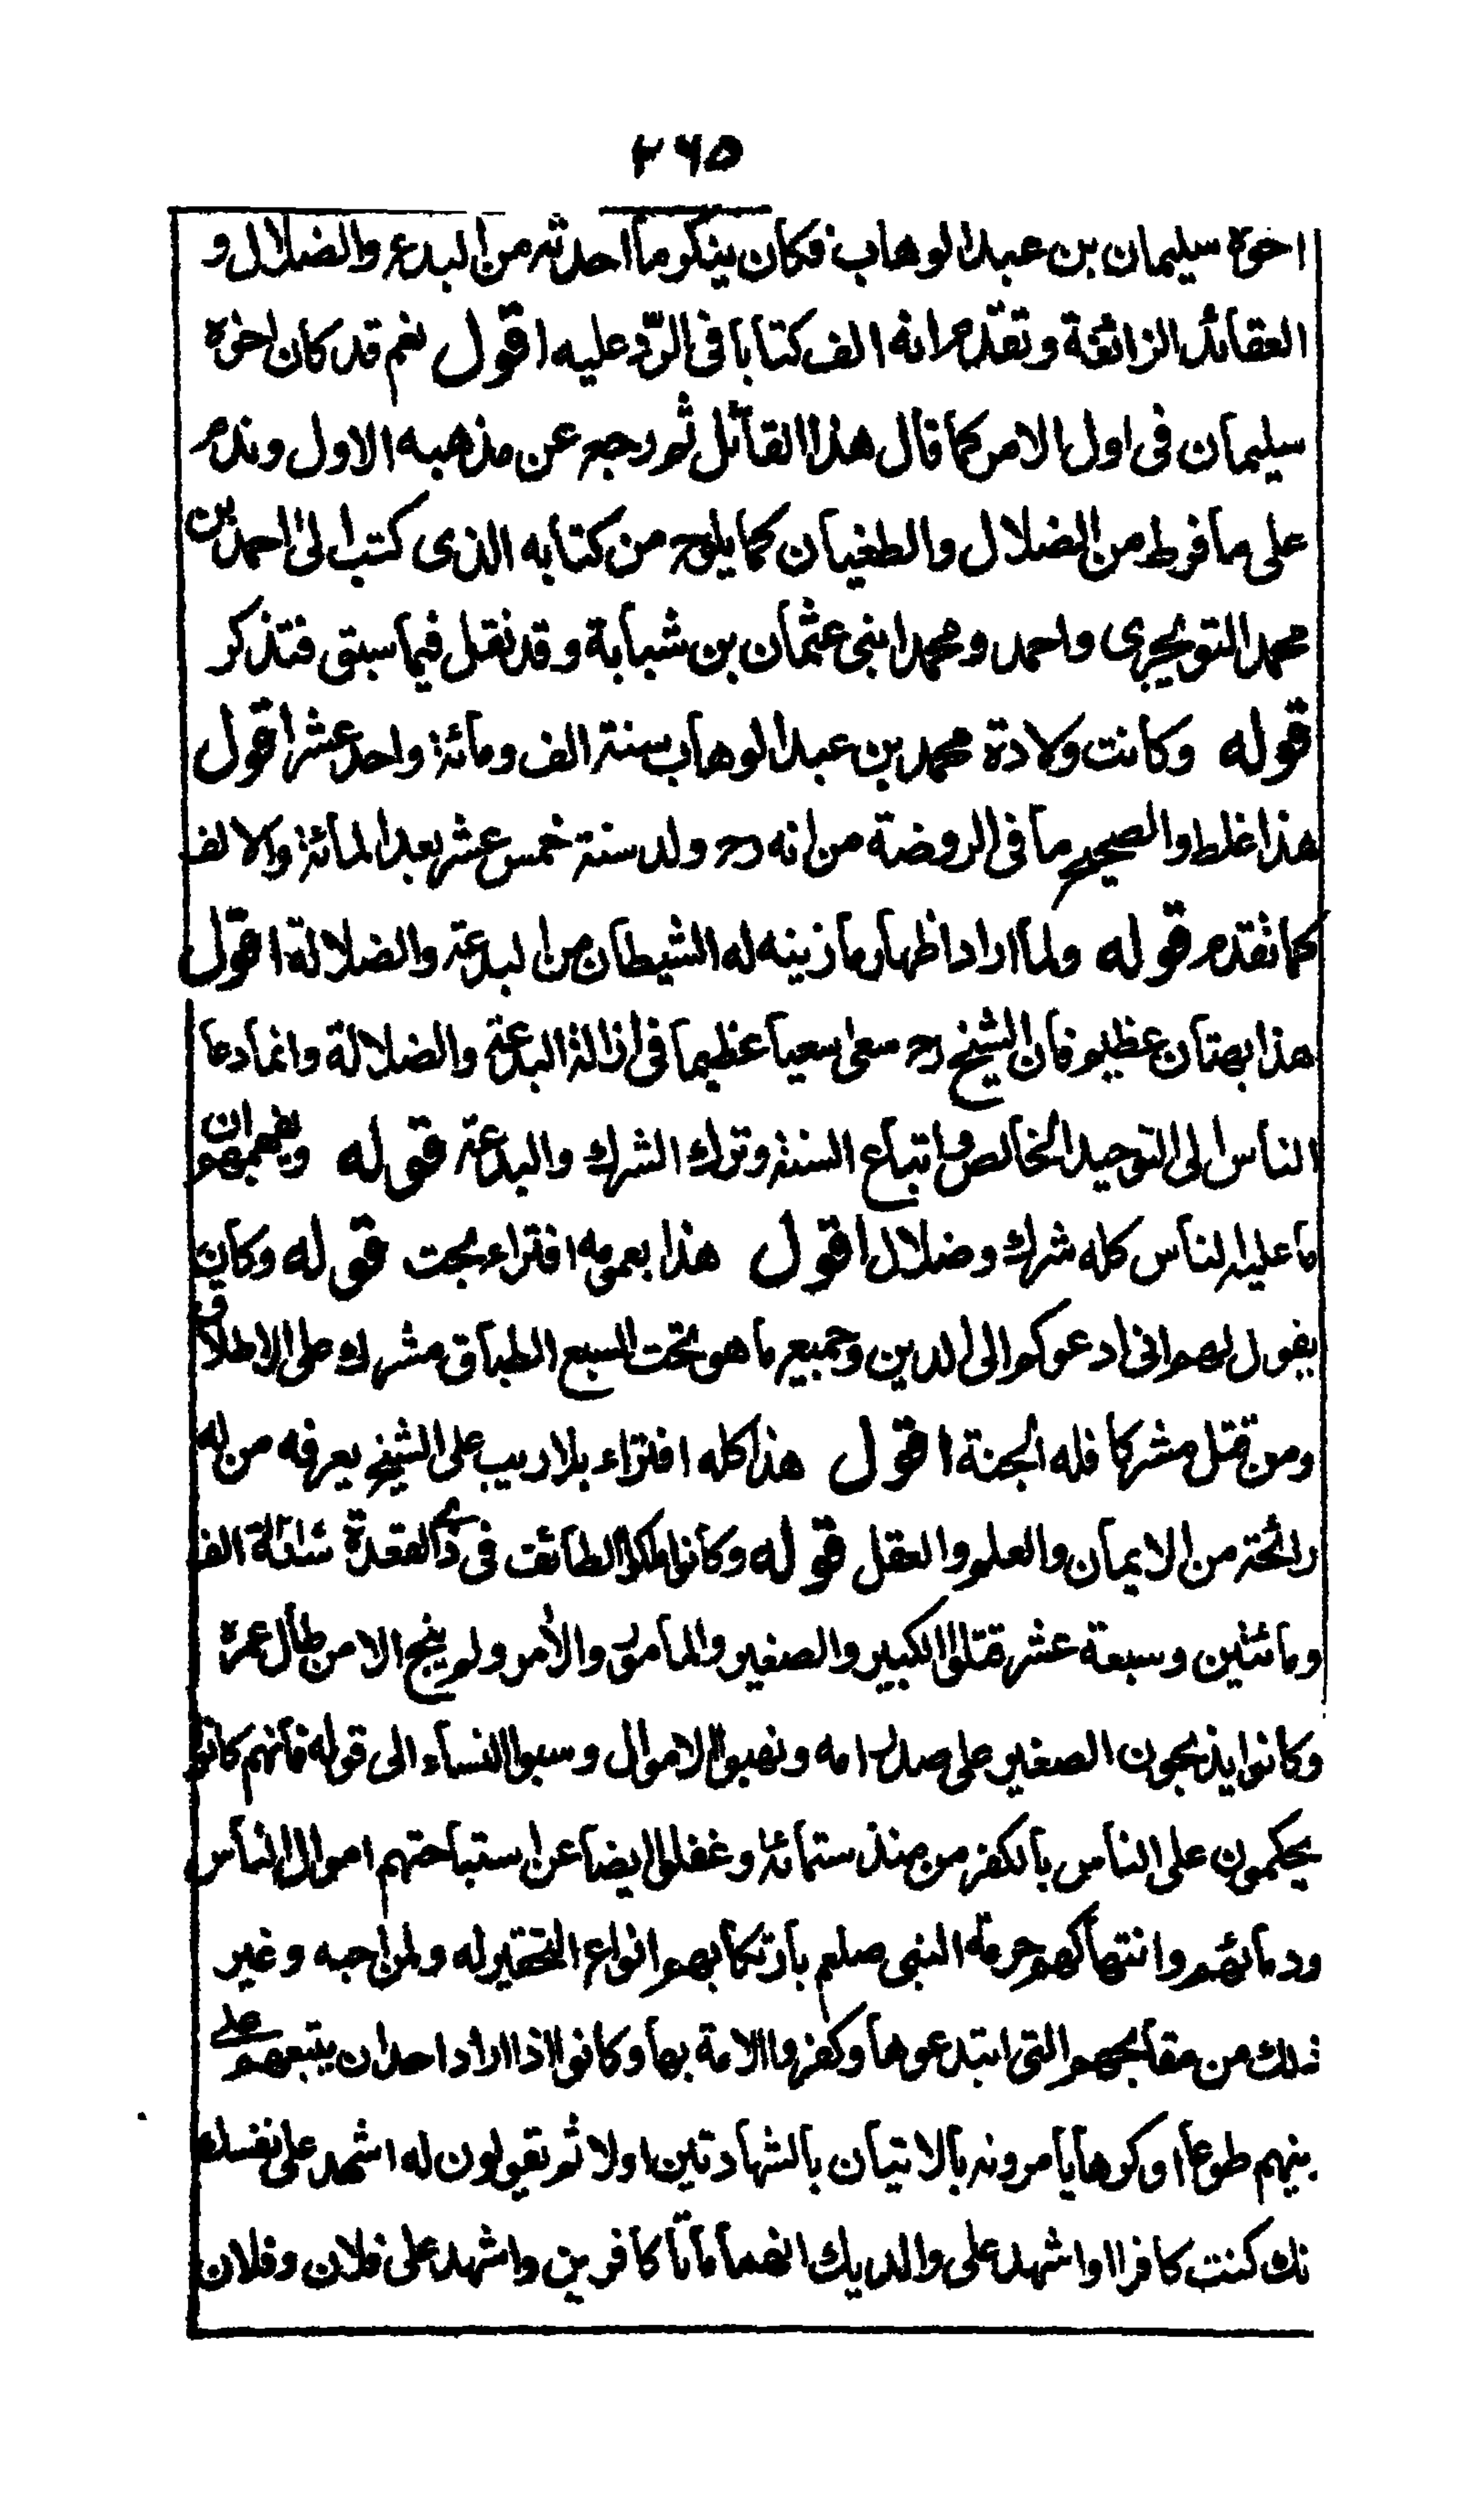 ٢٦٥
اخوه سليمان بن عبد الوهاب فكان ينكر ما احدثه من البدع والضلال و
العقائد الزائغة وتقدم انه الف كتابا فى الرّد عليه اقول نعم قد كان اخوه
سليمان فى اول الامر كما قال هذا القائل ثم رجع عن مذهبه الاول وندم
على ما فرط من الضلال والطغيان كما يلوح من كتابه الذى كتب الى احمد بن
محمد التويجرى واحمد ومحمد ابنى عثمان بن شبابة وقد نقل فيما سبق فتذكر
قوله وكانت ولادة محمد بن عبد الوهاب سنة الف ومائة واحد عشر اقول
هذا غلط والصحيح ما فى الروضة من انه رح ولد سنة خمس عشر بعد المائة والالف
كما تقدم قوله ولما اراد اظهار ما زينه له الشيطان من البدعة والضلالة اقول
هذا بهتان عظيم فان الشيخ رح سعى سعيا عظيما فى ازالة البدعة والضلالة وانما دعا
الناس الى التوحيد الخالص واتباع السنة وترك الشرك والبدعة قوله ويفهمهم ان
ما عليه الناس كله شرك وضلال اقول هذا بعمومه افتراء بحت قوله وكان
يقول لهم انى ادعوكم الى الدين وجميع ما هو تحت السبع الطباق مشرك على الاطلاق
ومن قتل مشركا فله الجنة اقول هذا كله افتراء بلا ريب على الشيخ يعرفه من له
رائحة من الايمان والعلم والعقل قوله وكانوا ملكوا الطائف فى ذى القعدة سنة الف
ومائتين وسبعة عشر قتلوا الكبير والصغير والمامور والأمر ولم ينج الا من طال عمره
وكانوا يذبحون الصغير على صدر امه ونهبوا الاموال وسبوا النساء الى قوله فانهم كانوا
يحكمون على الناس بالكفر من منذ ستمائة وغفلوا ايضا عن استباحتهم اموال الناس
ودمائهم وانتهاكهم حرمة النبى صلعم بارتكابهم انواع التحقير له ولمن احبه وغير
ذلك من مقابحهم التى ابتدعوها وكفروا الامة بها وكانوا اذا اراد احد ان يتبعهم على
دينهم طوعا او كرها يامرونه بالاتيان بالشهادتين اولا ثم يقولون له اشهد على نفسك
نك كنت كافرا واشهد على والديك انهما ماتا كافرين واشهد على فلان وفلان